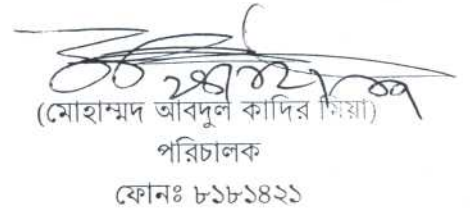 (মোহাম্মদ আবদুল কাদির মিয়া)
পরিচালক
ফোনঃ ৮১৮১৪২১